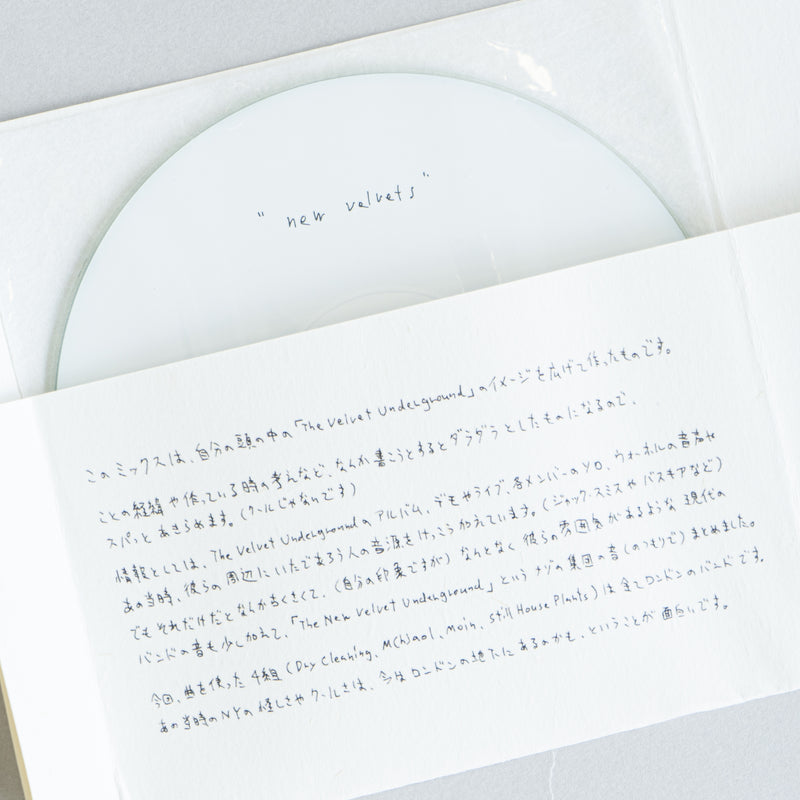 "new velvets"
このミックスは、自分の頭の中の「The Velvet Underground」のイメージを広げて作ったものです。
ことの経緯や作っている時の考えなど、なんか書こうとするとダラダラとしたものになるので、
スパっとあきらめます。(クールじゃないです)
情報としては、The Velvet Undergroundのアルバム、デモやライブ、各メンバーのソロ、ウォーホルの音声や
あの当時、彼らの周辺にいたであろう人の音源をけっこう加えています。(ジャック・スミスやバスキアなど)
でもそれだけだとなんか古くさくて、(自分の印象ですが)なんとなく彼らの雰囲気があるような現代の
バンドの音も少し加えて、「The New Velvet Underground」というナゾの集団の音(のつもりで)まとめました。
今回、曲を使った4組(Dry Cleaning、Mchiaol、Moin、still House Plants)は全てロンドンのバンドです。
あの当時のNYの怪しさやクールさは、今はロンドンの地下にあるのかも、ということが面白いです。